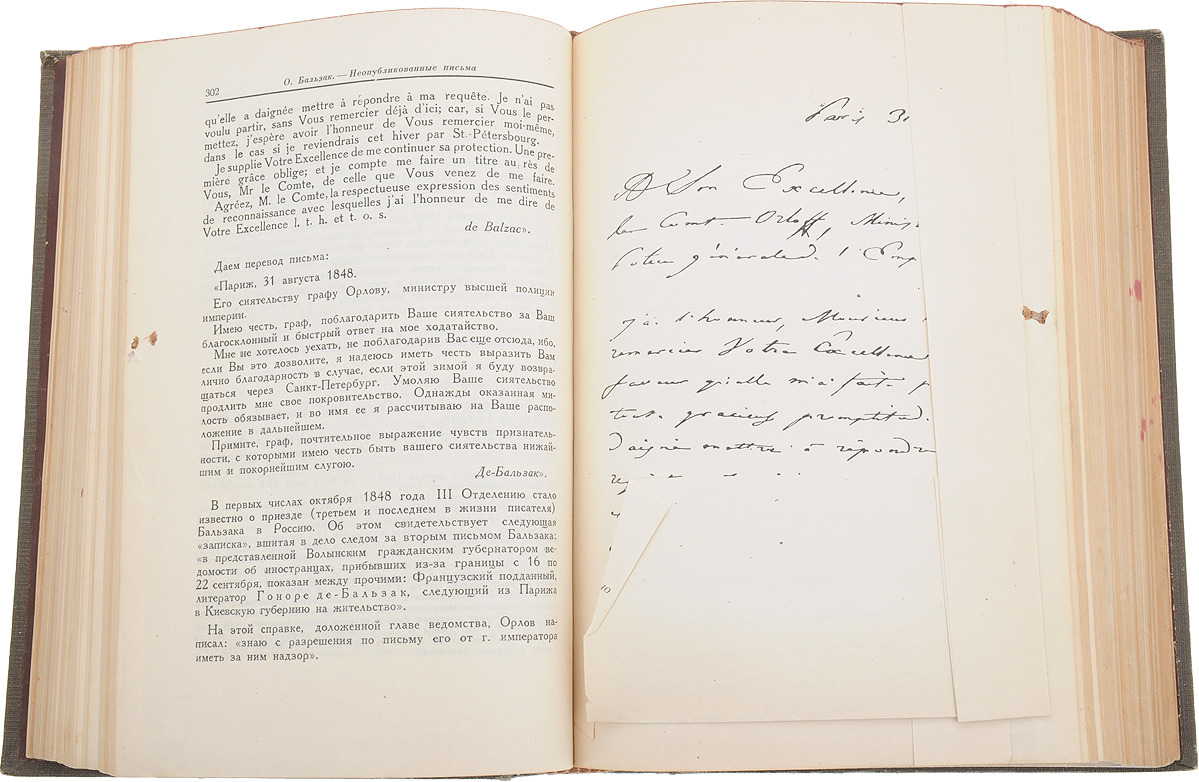 302
О. Бальзак. — Неопубликованные письма
qu'elle a daignée mettre à répondre à ma requête. Je n'ai pas
voulu partir, sans Vous remercier déjà d'ici; car, si Vous le per-
mettez, j'espère avoir l'honneur de Vous remercier moi-même,
dans le cas si je reviendrais cet hiver par St.-Pétersbourg.
Je supplie Votre Excellence de me continuer sa protection. Une pre-
mière grâce oblige; et je compte me faire un titre au rès de
Vous, Mr le Comte, de celle que Vous venez de me faire.
Agréez, M. le Comte, la respectueuse expression des sentiments
de reconnaissance avec lesquelles j'ai l'honneur de me dire de
Votre Excellence l. t. h. et t. o. s.
de Balzac».
Даем перевод письма:
«Париж, 31 августа 1848.
Его сиятельству графу Орлову, министру высшей полиции
империи.
Имею честь, граф, поблагодарить Ваше сиятельство за Ваш
благосклонный и быстрый ответ на мое ходатайство.
Мне не хотелось уехать, не поблагодарив Вас еще отсюда, ибо,
если Вы это дозволите, я надеюсь иметь честь выразить Вам
лично благодарность в случае, если этой зимой я буду возвра-
щаться через Санкт-Петербург. Умоляю Ваше сиятельство
продлить мне свое покровительство. Однажды оказанная ми-
лость обязывает, и во имя ее я рассчитываю на Ваше распо-
ложение в дальнейшем.
Примите, граф, почтительное выражение чувств признатель-
ности, с которыми имею честь быть вашего сиятельства нижай-
шим и покорнейшим слугою.
Де-Бальзак».
В первых числах октября 1848 года III Отделению стало
известно о приезде (третьем и последнем в жизни писателя)
Бальзака в Россию. Об этом свидетельствует следующая
«записка», вшитая в дело следом за вторым письмом Бальзака:
«в представленной Волынским гражданским губернатором ве-
домости об иностранцах, прибывших из-за границы с 16 по
22 сентября, показан между прочими: Французский подданный,
литератор Гоноре де-Бальзак, следующий из Парижа
в Киевскую губернию на жительство».
На этой справке, доложенной главе ведомства, Орлов на-
писал: «знаю с разрешения по письму его от г. императора
иметь за ним надзор».
Paris 31
A Son Excellence,
Le Comte Orloff, Minis
Police générale de l'Emp
J'ai l'honneur, Monsieur
remercier Votre Excellence
faveur qu'elle m'a faite
grâcieuse promptitud
daignée mettre à répondre